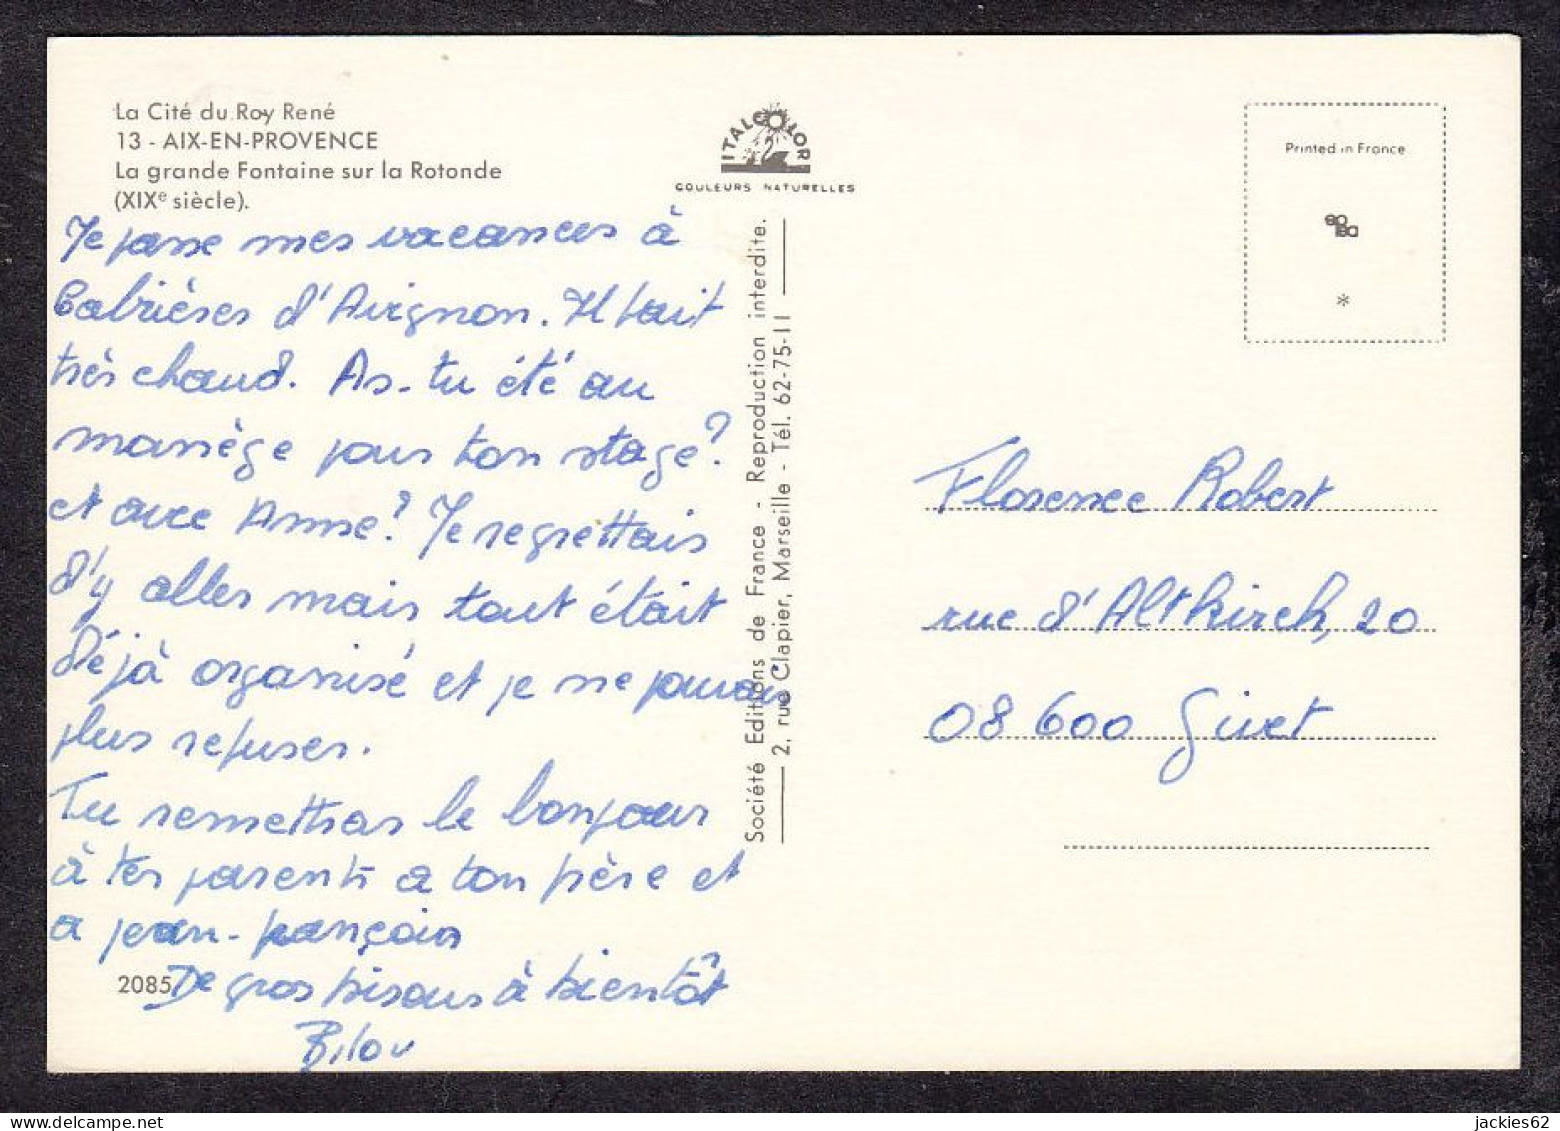 La Cité du Roy René
13 - AIX-EN-PROVENCE
La grande Fontaine sur la Rotonde
(XIXe siècle).
ITALCOLOR
COULEURS NATURELLES
Printed in France
*
Je passe mes vacances à
Cabrières d'Avignon. Il fait
très chaud. As-tu été au
manège pour ton stage?
et avec Anne? Je regrettais
d'y aller mais tout était
Déjà organisé et je ne pouvais
plus refuser.
Tu remettras le bonjour
à tes parents a ton frère et
a jean-françois
De gros bisous à bientôt
Bilou
2085
Société Editions de France - Reproduction interdite.
2, rue Clapier, Marseille - Tél. 62-75-11
Florence Robert
rue d'Altkirch, 20
08 600 Givet
jackies62